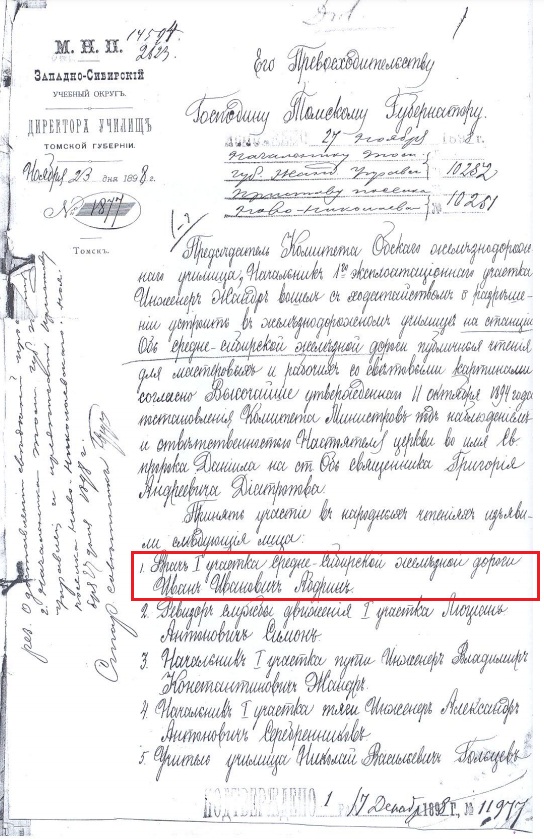 14594
2823
1
М. Н. П.
Западно-Сибирскій
УЧЕБНЫЙ ОКРУГЪ.
ДИРЕКТОРА УЧИЛИЩЪ
ТОМСКОЙ ГУБЕРНІИ.
Ноября 23 дня 1898 г.
№ 1877
Томскъ.
Его Превосходительству
Господину Томскому Губернатору.
27 Ноября
Начальнику Томск.
губ. Жанд. Управл. 10252
Приставу поселка
Ново-Николаевск. № 10251
Председатель Комитета Обскаго желѣзнодорож-
наго училища, Начальникъ 1го эксплоатаціоннаго участка
Инженеръ Жандръ вошелъ съ ходатайствомъ о разрѣше-
ніи устроить въ желѣзнодорожномъ училищѣ на станціи
Обь средне-сибирской желѣзной дороги публичныя чтенія
для мастеровыхъ и рабочихъ со свѣтовыми картинами
согласно Высочайше утвержденнаго 11 октября 1894 года
постановленія Комитета Министровъ подъ наблюденіемъ
и отвѣтственностью Настоятеля церкви во имя Св.
пророка Даніила на ст. Обь священника Григорія
Андреевича
Принять участіе въ народныхъ чтеніяхъ изъяви-
ли слѣдующія лица:
1. Врачъ I участка Средне-Сибирской желѣзной дороги
Иванъ Ивановичъ Абдринъ.
2. Ревизоръ службы движенія I участка Люціанъ
Антоновичъ Симонъ.
3. Начальникъ I участка пути Инженеръ Владимиръ
Константиновичъ Жандръ.
4. Начальникъ I участка тяги Инженеръ Александръ
Антоновичъ Серебренниковъ
5. Учитель училища Николай Васильевичъ Гольцевъ
ПОДТВЕРЖДЕНО 1 17 Декабр 1898 г. № 11977